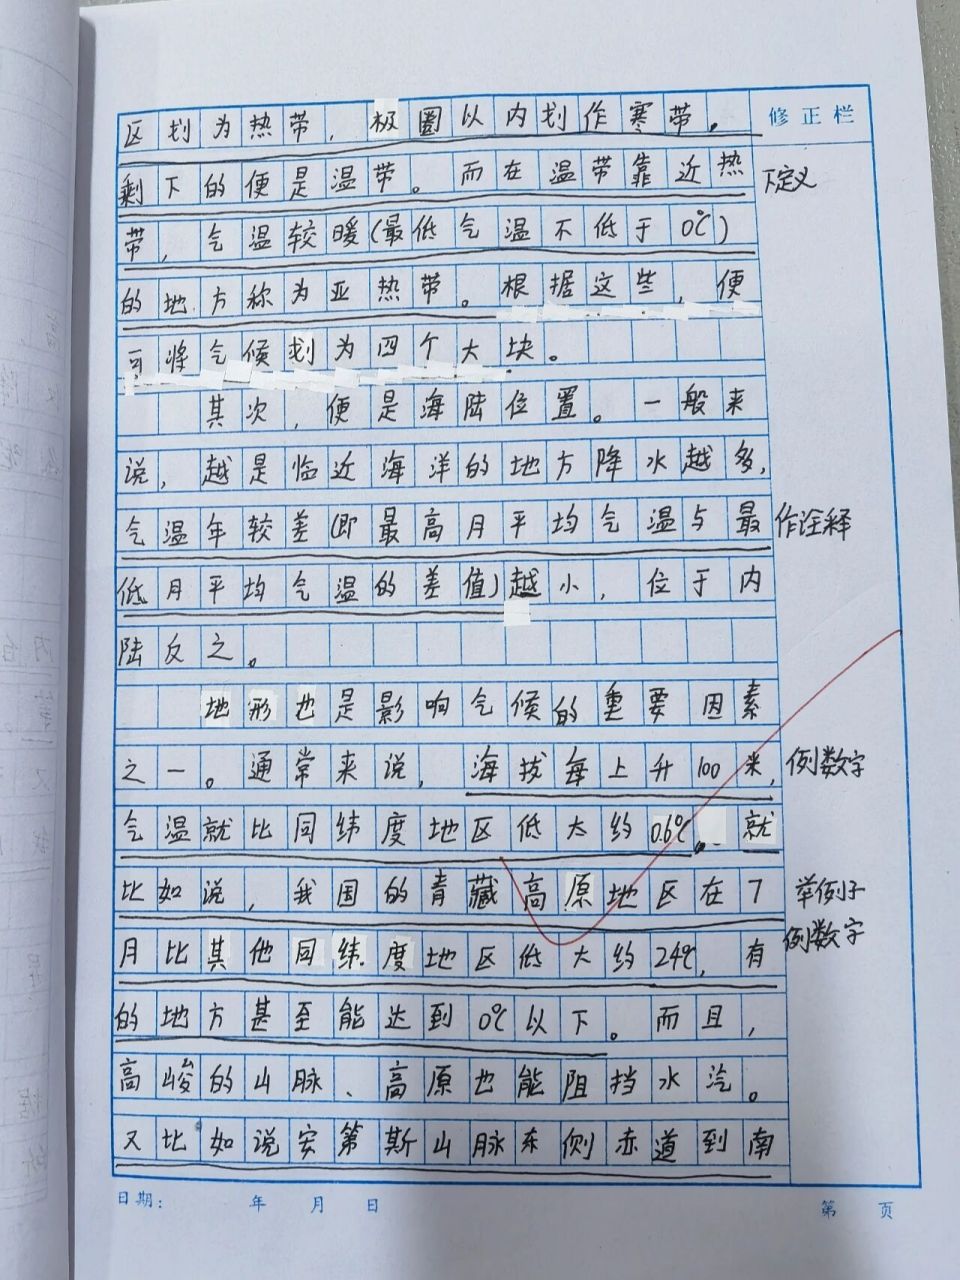 修正栏
区划为热带，极圈以内划作寒带。
剩下的便是温带。而在温带靠近热
下定义
带，气温较暖(最低气温不低于0℃)
的地方称为亚热带。根据这些，便
可将气候划为四个大块。
其次，便是海陆位置。一般来
说，越是临近海洋的地方降水越多，
气温年较差(即最高月平均气温与最
作诠释
低月平均气温的差值)越小，位于内
陆反之。
地形也是影响气候的重要因素
之一。通常来说，海拔每上升100米，
列数字
气温就比同纬度地区低大约0.6℃。就
比如说，我国的青藏高原地区在7
举例子
月比其他同纬度地区低大约24℃，有
列数字
的地方甚至能达到0℃以下。而且，
高峻的山脉、高原也能阻挡水汽。
又比如说安第斯山脉东侧赤道到南
日期： 年 月 日 第 页